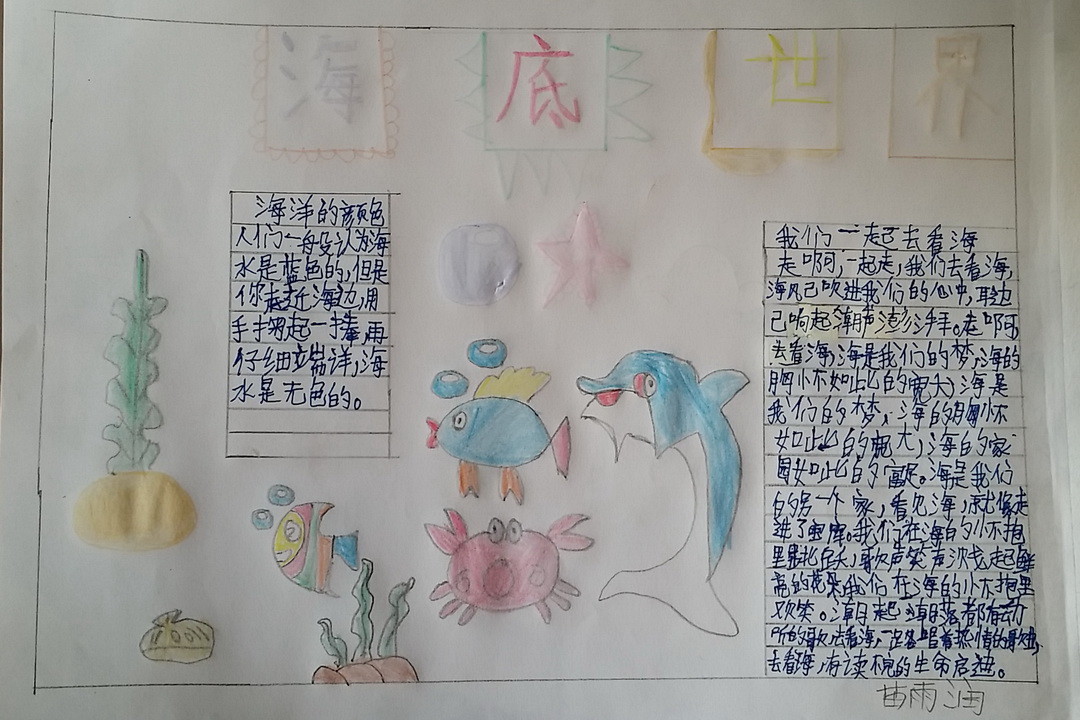 海底世界
海洋的颜色
人们一般认为海
水是蓝色的,但是
你走近海边,用
手掬起一捧,再
仔细端详,海
水是无色的。
我们一起去看海
走啊,一起走,我们去看海,
海风已吹进我们的心中,耳边
已响起潮声澎湃。走啊,
去看海,海是我们的梦,海的
胸怀如此的宽大,海是
我们的梦,海的胸怀
如此的宽大,海的家
园如此的富足。海是我们
的另一个家,看见海,就像走
进了宝库。我们在海的怀抱
里,歌声笑声
我们在海的怀抱里
欢笑。潮起潮落都有动
听的歌,去看海,一定要唱着热情的歌,
去看海,有读不完的生命启迪。
苗雨润